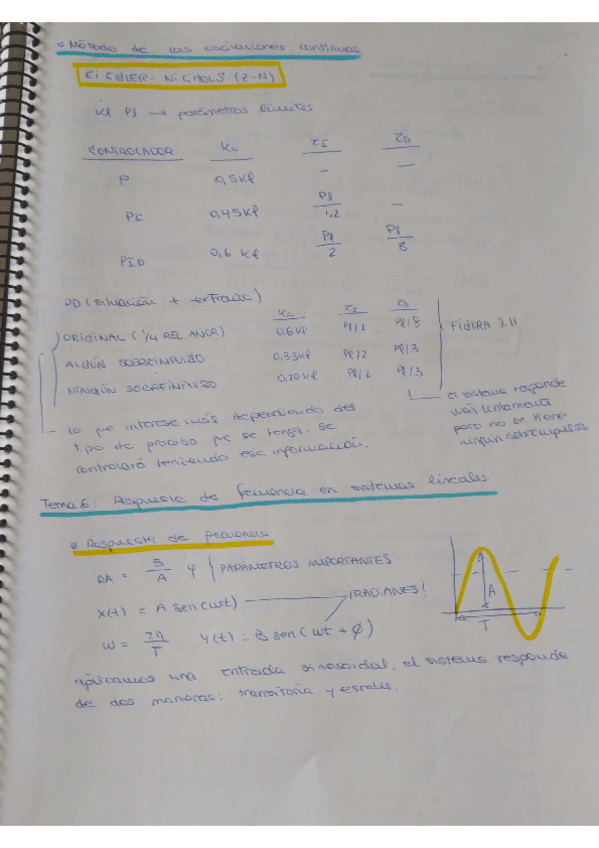 Método de las oscilaciones continuas
ZIEGLER-NICHOLS (Z-N)
Kl Pl → parámetros límites
CONTROLADOR Kc τI τD
P 0,5Kl — —
PI 0,45Kl Pl/1,2 —
PID 0,6 Kl Pl/2 Pl/8
Kc τI τD
ORIGINAL (1/4 REL. AMOR) 0,6Kl Pl/2 Pl/8
ALGÚN SOBREIMPULSO 0,33Kl Pl/2 Pl/3
NINGÚN SOBREIMPULSO 0,20Kl Pl/2 Pl/3
FIGURA 7.11
el sistema responde
más lentamente
pero no se tiene
ningún sobreimpulso
Lo que interese más dependiendo del
tipo de proceso que se tenga. Se
controlará teniendo esa información.
Tema 6: Respuesta de frecuencia en sistemas lineales.
Respuesta de frecuencia
RA = B/A φ PARÁMETROS IMPORTANTES
X(t) = A sen(wt) ¡RADIANES!
W = 2π/T Y(t) = B sen(wt + φ)
A
T
aplicamos una entrada sinusoidal, el sistema responde
de dos maneras: transitoria y estable.